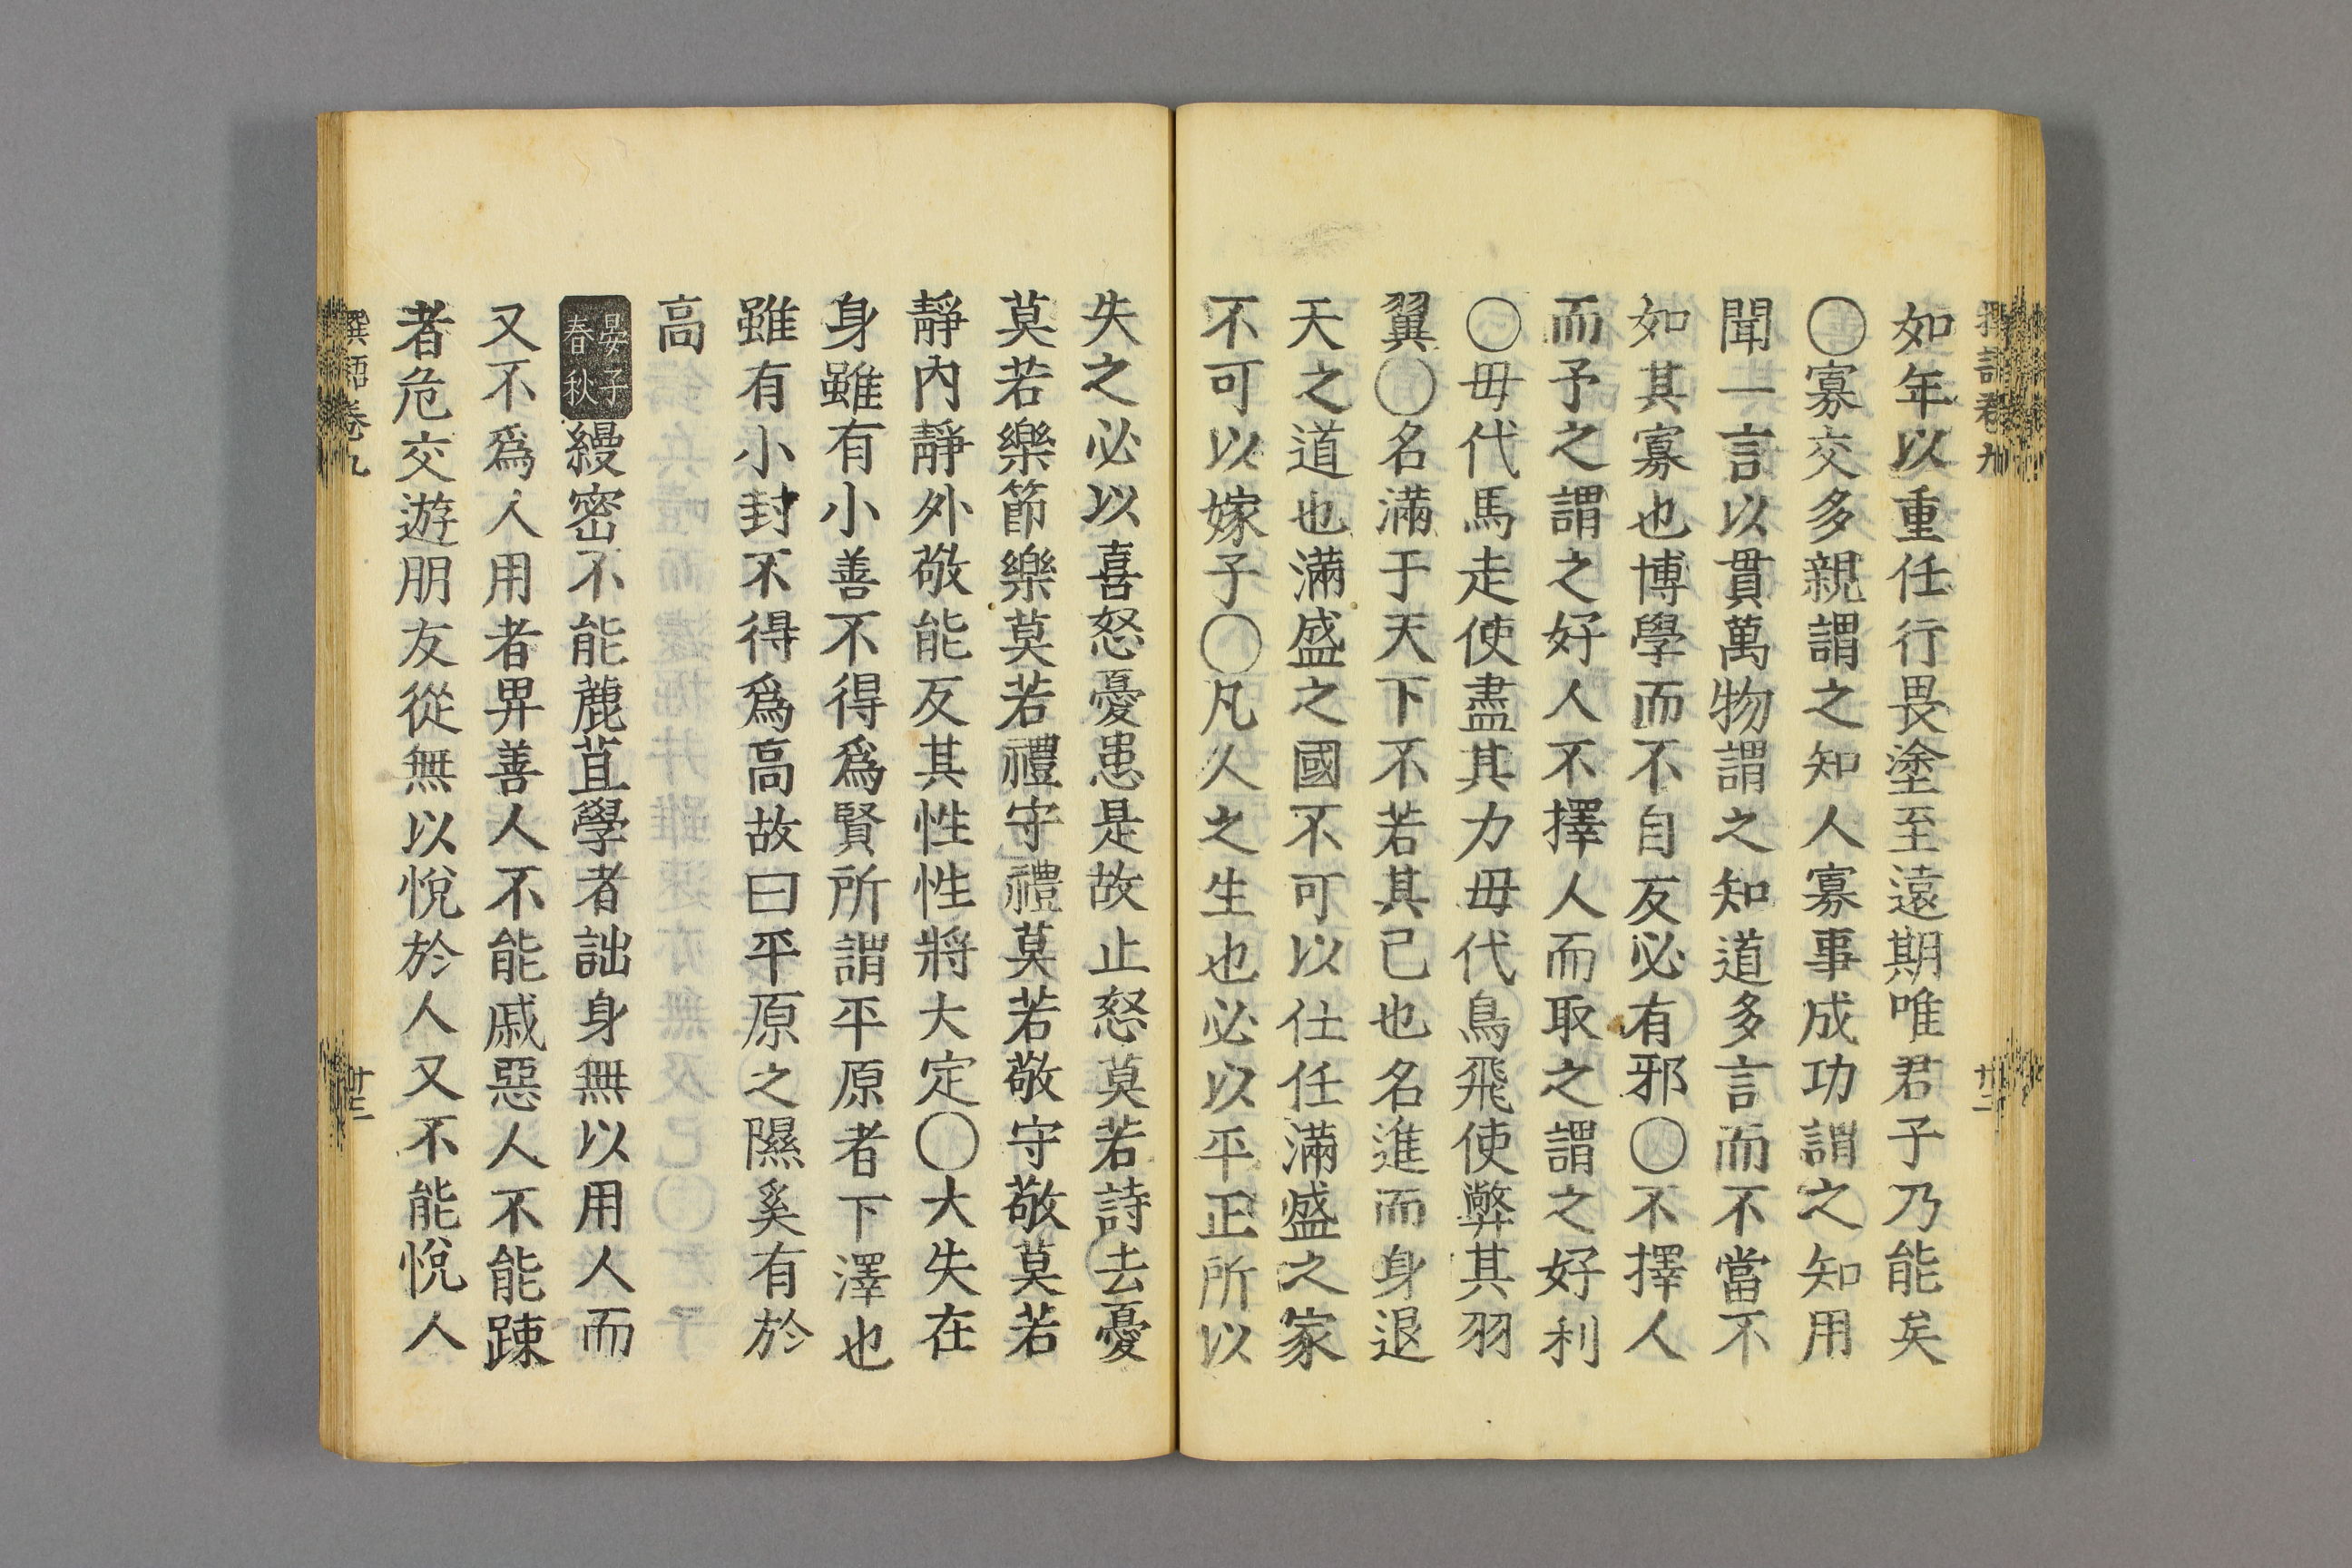 如年以重任行畏塗至遠期唯君子乃能矣
〇寡交多親謂之知人寡事成功謂之知用
聞一言以貫萬物謂之知道多言而不當不
如其寡也博學而不自友必有邪〇不擇人
而予之謂之好人不擇人而取之謂之好利
〇毋代馬走使盡其力毋代鳥飛使弊其羽
翼〇名滿于天下不若其已也名進而身退
天之道也滿盛之國不可以仕任滿盛之家
不可以嫁子〇凡人之生也必以平正所以
失之必以喜怒憂患是故止怒莫若詩去憂
莫若樂節樂莫若禮守禮莫若敬守敬莫若
靜內靜外敬能反其性性將大定〇大失在
身雖有小善不得爲賢所謂平原者下澤也
雖有小封不得爲高故曰平原之隰奚有於
高
晏子春秋縵密不能蔍苴學者詘身無以用人而
又不爲人用者畀善人不能戚惡人不能踈
者危交遊朋友從無以悅於人又不能悅人
卷九
卷九